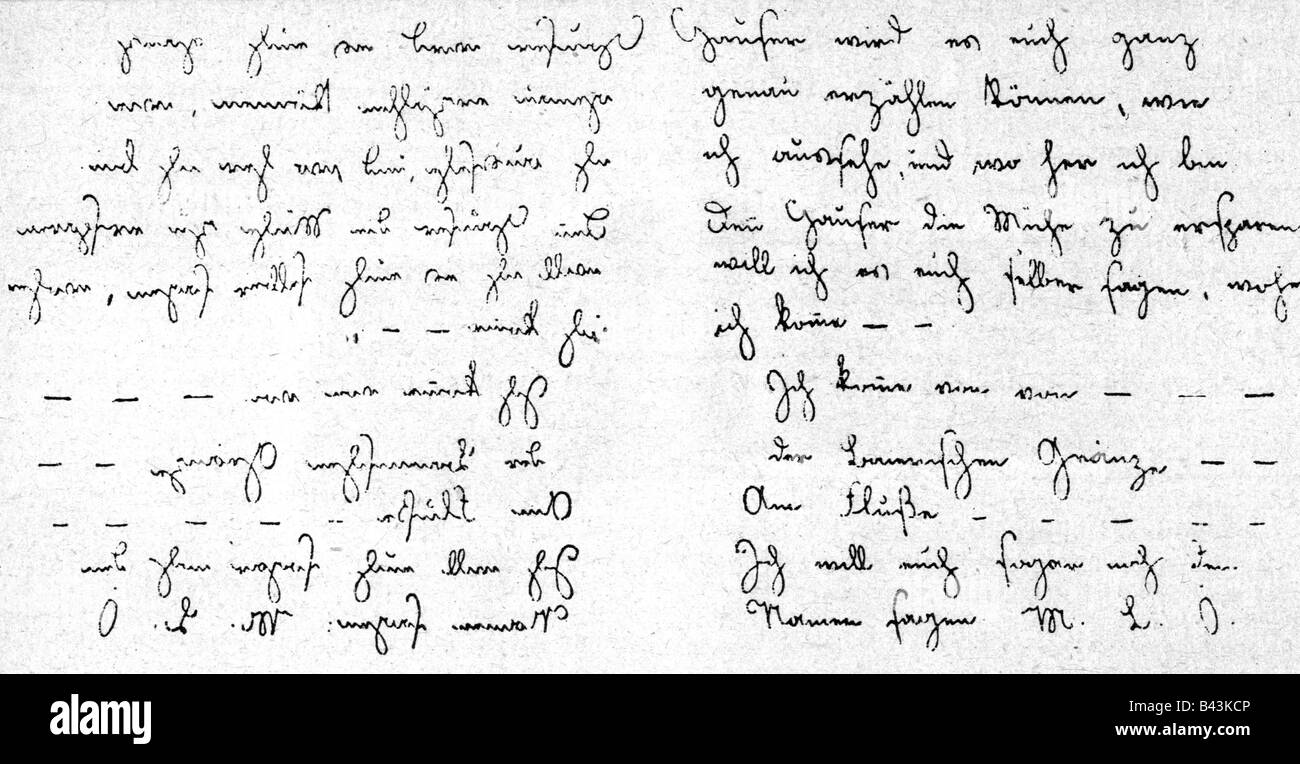 Hauser wird es euch ganz
genau erzählen können, wie
ich aussehe, und wo her ich bin
Dem Hauser die Mühe zu ersparen
will ich es euch selber sagen, wohe
ich kome — —
Ich kome von von — — —
der Baierischen Gränze — —
Am Fluße — — — — —
Ich will euch sogar noch den
Namen sagen M. L. Ö.
alamy
Image ID: B43KCP
www.alamy.com